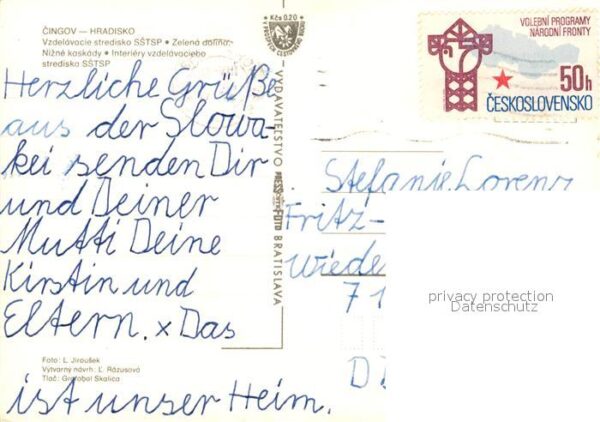 ČINGOV — HRADISKO
Vzdelávacie stredisko SŠTSP • Zelená dolina •
Nižné kaskády • Interiéry vzdelávacieho
strediska SŠTSP
Kčs 0,20
Herzliche Grüße
aus der Slowa-
kei senden Dir
und Deiner
Mutti Deine
Kirstin und
Eltern. x Das
ist unser Heim.
Foto: L. Jiroušek
Výtvarný návrh: Ľ. Rázusová
Tlač: Grafobal Skalica
VYDAVATEĽSTVO PRESSFOTO BRATISLAVA
VOLEBNÍ PROGRAMY
NÁRODNÍ FRONTY
50h
ČESKOSLOVENSKO
Stefanie Lorenz
Fritz-
Wiede
71
D
privacy protection
Datenschutz